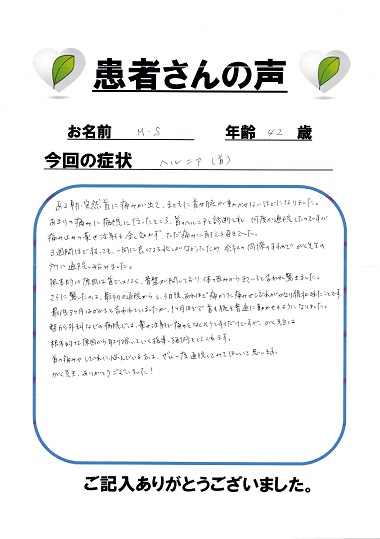 患者さんの声
お名前 M.S 年齢 42 歳
今回の症状 ヘルニア(首)
ある朝、突然、首に痛みが出て、まともに首や腕が動かせないほどになりました。
あまりの痛みに病院に行ったところ、首のヘルニアと診断され、何度か通院したのですが
痛み止めの薬や注射も全く効かず、ただ痛みに耐える日々でした。
3週間ほど経っても、一向に良くなる兆しがなかったため、会社の同僚のすすめで がく先生の
所に通院し始めました。
根本的な原因は首ではなく、骨盤が開いており、体の歪みからきていると言われ驚きました。
さらに驚いたのは、最初の通院から2、3日後、あれほど痛かった痛みやしびれがかなり緩和されたことです。
最低3ヶ月はかかると言われていましたが、1ヶ月ほどで首も腕も普通に動かせるようになりました。
整形外科などの病院では、薬や注射で痛みをごまかそうとするだけですが、がく先生は
根本的な原因から取り除いていく指導、施術をしてくれます。
首の痛みやしびれに悩んでいる方は、ぜひ一度通院してみてほしいと思います。
がく先生、ありがとうございました!
ご記入ありがとうございました。